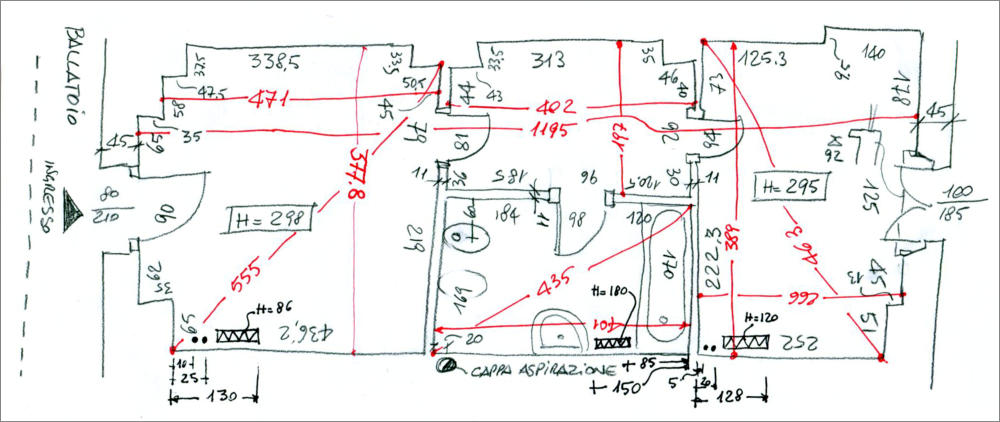 BALLATOIO
INGRESSO
80
210
90
45
35
59
58
47,5
32,5
338,5
33,5
50,5
471
45
377.8
H=298
555
35,62
59
H=86
436,2
10
25
130
44
43
33,5
313
35
46
40
402
1195
78
81
11
36
185
184
11
96
98
167
92
30
120,5
120
11
219
169
435
170
401
H=180
20
CAPPA ASPIRAZIONE
+85
+150
5
73
94
125.3
36
140
178
45
92
125
100
185
H=295
463
389
222.3
266
13
45
51
H=120
252
20
128